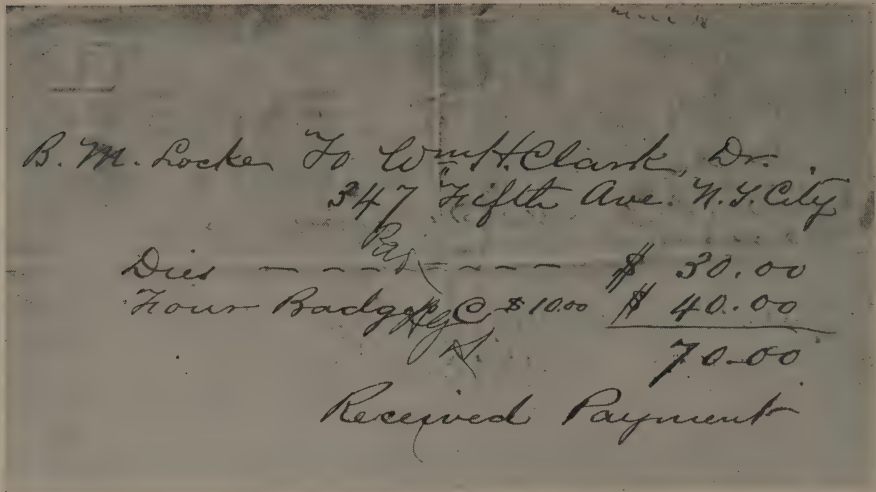 B. M. Locke To Wm H. Clark, Dr.
347 Fifth Ave. N.Y. City
Dies - - - - - - - - $ 30.00
Four Badges @ $10.00 $ 40.00
70.00
Received Payment